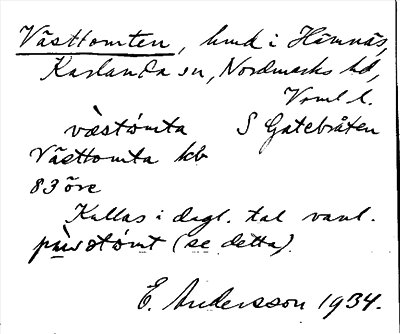 Västtomten, hmd i Hämnäs,
Karlanda sn, Nordmarks hd,
Vrml l.
væstómta S Gatebråten
Västtomta kb
83 öre
Kallas i dagl. tal vanl.
(se detta).
E. Andersson 1934.